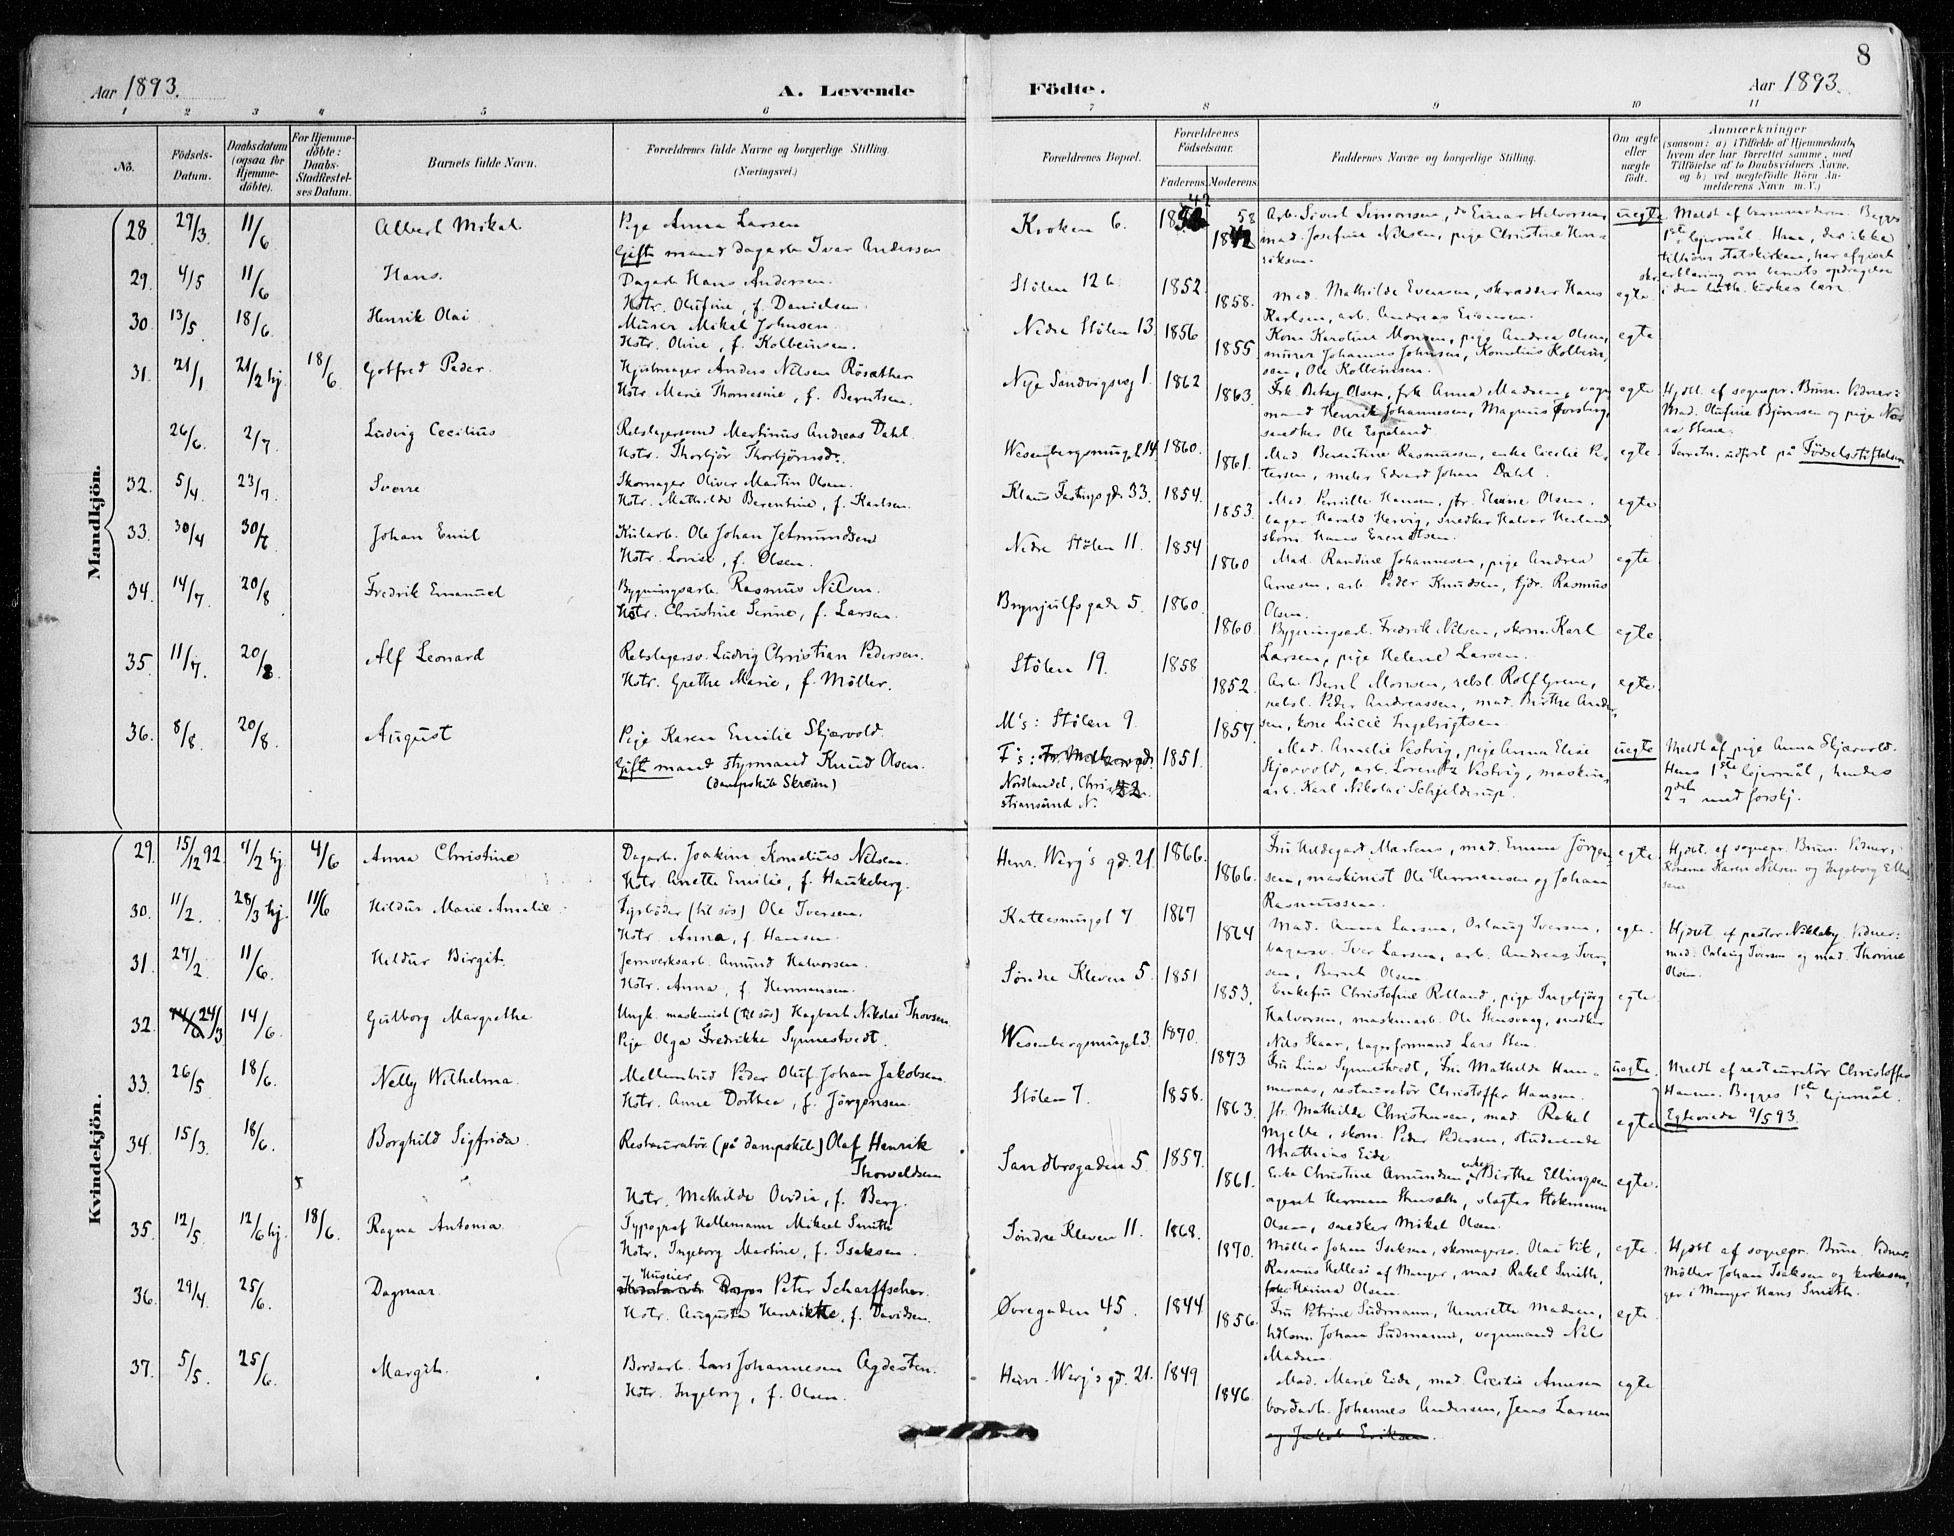 8
Aar 1893.
A. Levende
Födte.
Aar 1893.
1 2 3 4 5 6 7 8 9 10 11
No.
Födsels-Datum.
Daabsdatum (ogsaa for Hjemme-döbte).
For Hjemme-döbte: Daabs-Stadfæstel-ses Datum.
Barnets fulde Navn.
Forældrenes fulde Navne og borgerlige Stilling.
(Næringsvei.)
Forældrenes Bopæl.
Forældrenes Födselsaar.
Faderens. Moderens.
Faddernes Navne og borgerlige Stilling.
Om ægte eller uægte födt.
Anmærkninger
(saasom: a) i Tilfælde af Hjemmedaab, hvem der har forrettet samme, med Tilföielse af to Daabsvidners Navne. og b) ved uægtefödte Börn An-melderens Navn m. V.)
Mandkjön.
28. 27/3. 11/6 Albert Mikal Pige Anna Larsen
Gift mand dagarb. Ivar Andersen
Kroken 6. 1842 1858
Arb. Sivert Simonsen, do Einar Halvorsen,
mad. Josefine Nilsen, pige Christine Hen-
riksen.
uegte
Meldt af barnemoderen. Begges
1ste lejermål. Han, der ikke
tilhører statskirken, har afgivet
skr. erklæring om barnets opdragelse
i den luth. kirkes lære.
29. 4/5 11/6 Hans. Dagarb. Hans Andersen.
Hstr. Olufine, f. Danielsen.
Stölen 12 b. 1852. 1858.
Mad. Mathilde Evensen, skrædder Hans
Karlsen, arb. Andreas Simonsen.
egte.
30. 13/5. 18/6. Henrik Olai Murer Mikal Johnsen.
Hstr. Oline, f. Kolbeinsen.
Nedre Stölen 13. 1856 1855.
Kone Karoline Monsen, pige Andrea Olsen,
murer Johannes Johnsen, Kornelius Kolbein-
sen, Ole Kolbeinsen.
egte
31. 21/1 21/2 hj. 18/6. Gotfred Peder. Hjulmager Anders Nilsen Rössether
Hstr. Marie Thomesine, f. Berntsen.
Nye Sandvigsvej 1. 1862 1863.
Frk. Betzy Olsen, frk. Anna Madsen, vogn-
mand Henrik Johannesen, Magnus Forsberg,
snedker Ole Espeland
egte
Hjdbt. af sognepr. Brun. Vidner:
Mad. Olufine Bjørnsen og pige
26/6. 2/7. Ludvig Cecilius Rebslagersvend Martinus Andreas Dahl.
Hstr. Thorbjör Thorbjörnsdr.
Wesenbergsmuget 14. 1860. 1861.
Mad Berentine Rasmussen, enke Cecilie Pe-
tersen, maler Edvard Johan Dahl.
egte.
udført på Fødselsstiftelsen
32. 5/4. 23/7. Sverre Skomager Oliver Martin Olsen.
Hstr. Mathilde Berentine, f. Karlsen.
Klaus Fastings gd. 33. 1854. 1853.
Mad. Pernille Hansen, jfr. Elvine Olsen,
bager Harald Hervig, snedker Halvor Herland,
skom. Hans Erentsen.
egte
33. 30/4 30/7. Johan Emil Kularb. Ole Johan Jetmundsen
Hstr. Lovise, f. Olsen.
Nedre Stölen 11. 1854 1860
Mad. Randine Johannesen, pige Andrea
Arnesen, arb. Peder Knudsen, tjdr. Rasmus
Olsen.
egte
34. 14/7. 20/8 Fredrik Emanuel Bygningsarb. Rasmus Nilsen.
Hstr. Christine Serine, f. Larsen.
Brynjulfs gade 5. 1860. 1860.
Bygningsarb. Fredrik Nilsen, skom. Karl
Larsen, pige Helene Larsen.
egte
35. 11/7. 20/8. Alf Leonard Rebslagersv. Ludvig Christian Pedersen.
Hstr. Grethe Marie, f. Möller.
Stölen 19. 1858 1852.
Arb. Bernt Monsen, rebsl. Rolf Greve,
rebsl. Peder Andreassen, mad. Birthe Ander-
sen, kone Lucie Ingebrigtsen.
egte.
36. 8/8. 20/8. August Pige Karen Emilie Skjærvold.
Gift mand styrmand Knud Olsen.
(dampskib Skreien)
M's: Stölen 9.
F's:
Nordlandet, Chri-
stiansund N.
1851. 1857.
Mad. Amelie Vestvig, pige Anna Elise
Skjærvold, arb. Lorentz Vestvig, maskin-
arb. Karl Nikolai Schjelderup.
uegte
Meldt af pige Anna Skjærvold.
Hans 1ste lejermål, hendes
2det med forskj.
Kvindekjön.
29. 15/12 92. 7/2 hj. 4/6 Anna Christine Dagarb. Joakim Kornelius Nilsen.
Hstr. Anette Emilie, f. Haukeberg.
Henr. Werg's gd. 21. 1866. 1866.
Fru Hildegard Martens, mad. Emma Jörgen-
sen, maskinist Ole Hermansen og Johan
Rasmussen.
egte.
Hjdbt. af sognepr. Brun. Vidner:
Konerne Karen Nilsen og Ingeborg
30. 11/2. 28/3 hj. 11/6 Hildur Marie Amalie Fyrböder (til sös) Ole Iversen.
Hstr. Anna, f. Hansen.
Kattesmuget 7 1867 1864
Mad. Anna Larsen, Oslaug Iversen,
bagersv. Iver Larsen, arb. Andreas Iver-
sen, Bernt Olsen.
egte.
Hjdbt. af pastor Nikleby. Vidner:
mad. Oslaug Iversen og mad. Thorine
Olsen.
31. 27/2. 11/6. Hildur Birgit. Jernverksarb. Amund Halvorsen.
Hstr. Anna, f. Hermansen.
Söndre Kleven 5. 1851 1853.
Enkefru Christofine Rolland, pige Ingebjörg
Halvorsen, maskinarb. Ole Stensvaag, snedker
Nils Skaar, lagerformand Lars Sten.
egte
32. 24/3 14/6. Gudborg Margrethe Ungk. maskinist (til sös) Hagbart Nikolai Thovsen.
Pige Olga Fredrikke Synnestvedt.
Wesenbergsmuget 3. 1870. 1873
Fru Lina Synnestvedt, Fru Mathilde Ham-
mernæs, restauratör Christoffer Hansen.
uegte
Meldt af restauratör Christoffer
Hansen. Begges 1ste lejermål.
Egteviede 9/5 93.
33. 26/5 18/6. Nelly Wilhelma. Mellembud Peder Oluf Johan Jakobsen.
Hstr. Anne Dorthea, f. Jörgensen.
Stölen 7. 1858. 1863.
Jfr. Mathilde Christensen, mad. Rakel
Mjelde, skom. Peder Pedersen, studerende
Mathias Eide.
egte
34. 15/3. 18/6. Borghild Sigfrida. Restauratör (på dampskib) Olaf Henrik
Thorvaldsen
Hstr. Mathilde Ovidia, f. Berg.
Sandbrogaden 5. 1857. 1861.
Enke Christine Amundsen, enke Birthe Ellingsen
agent Herman slagter
Olsen, snedker Mikal Olsen.
egte.
35. 12/5. 12/6 hj. 18/6. Ragna Antonia. Typograf Hallemann Mikael Smith.
Hstr. Ingeborg Martine, f. Isaksen.
Söndre Kleven 11. 1868. 1870.
Möller Johan Isaksen, skomagersv. Olai Vik,
Rasmus Hellesö af Manger, mad Rakel Smith,
Hanna Olsen.
egte.
Hjdbt. af sognepr. Brun. Vidner:
Möller Johan Isaksen og kirkesan-
ger i Manger Hans Smith.
36. 29/4. 25/6. Dagmar. Huseier Peter Scharffscher.
Hstr. Augusta Henrikke, f. Davidsen.
Øvregaden 45. 1844 1856.
Fru Petrine Südmann, Henriette Madsen,
hdlsm. Johan Südmann, vognmand Nils
Madsen.
egte.
37. 5/5. 25/6. Margit. Bordarb. Lars Johannesen Agdesten.
Hstr. Ingeborg, f. Olsen.
Henr. Werg's gd. 21. 1849 1846.
Mad. Marie Eide, mad. Cecilie Arnesen
bordarb. Johannes Andersen, Jens Larsen
og Jakob Eriksen.
egte